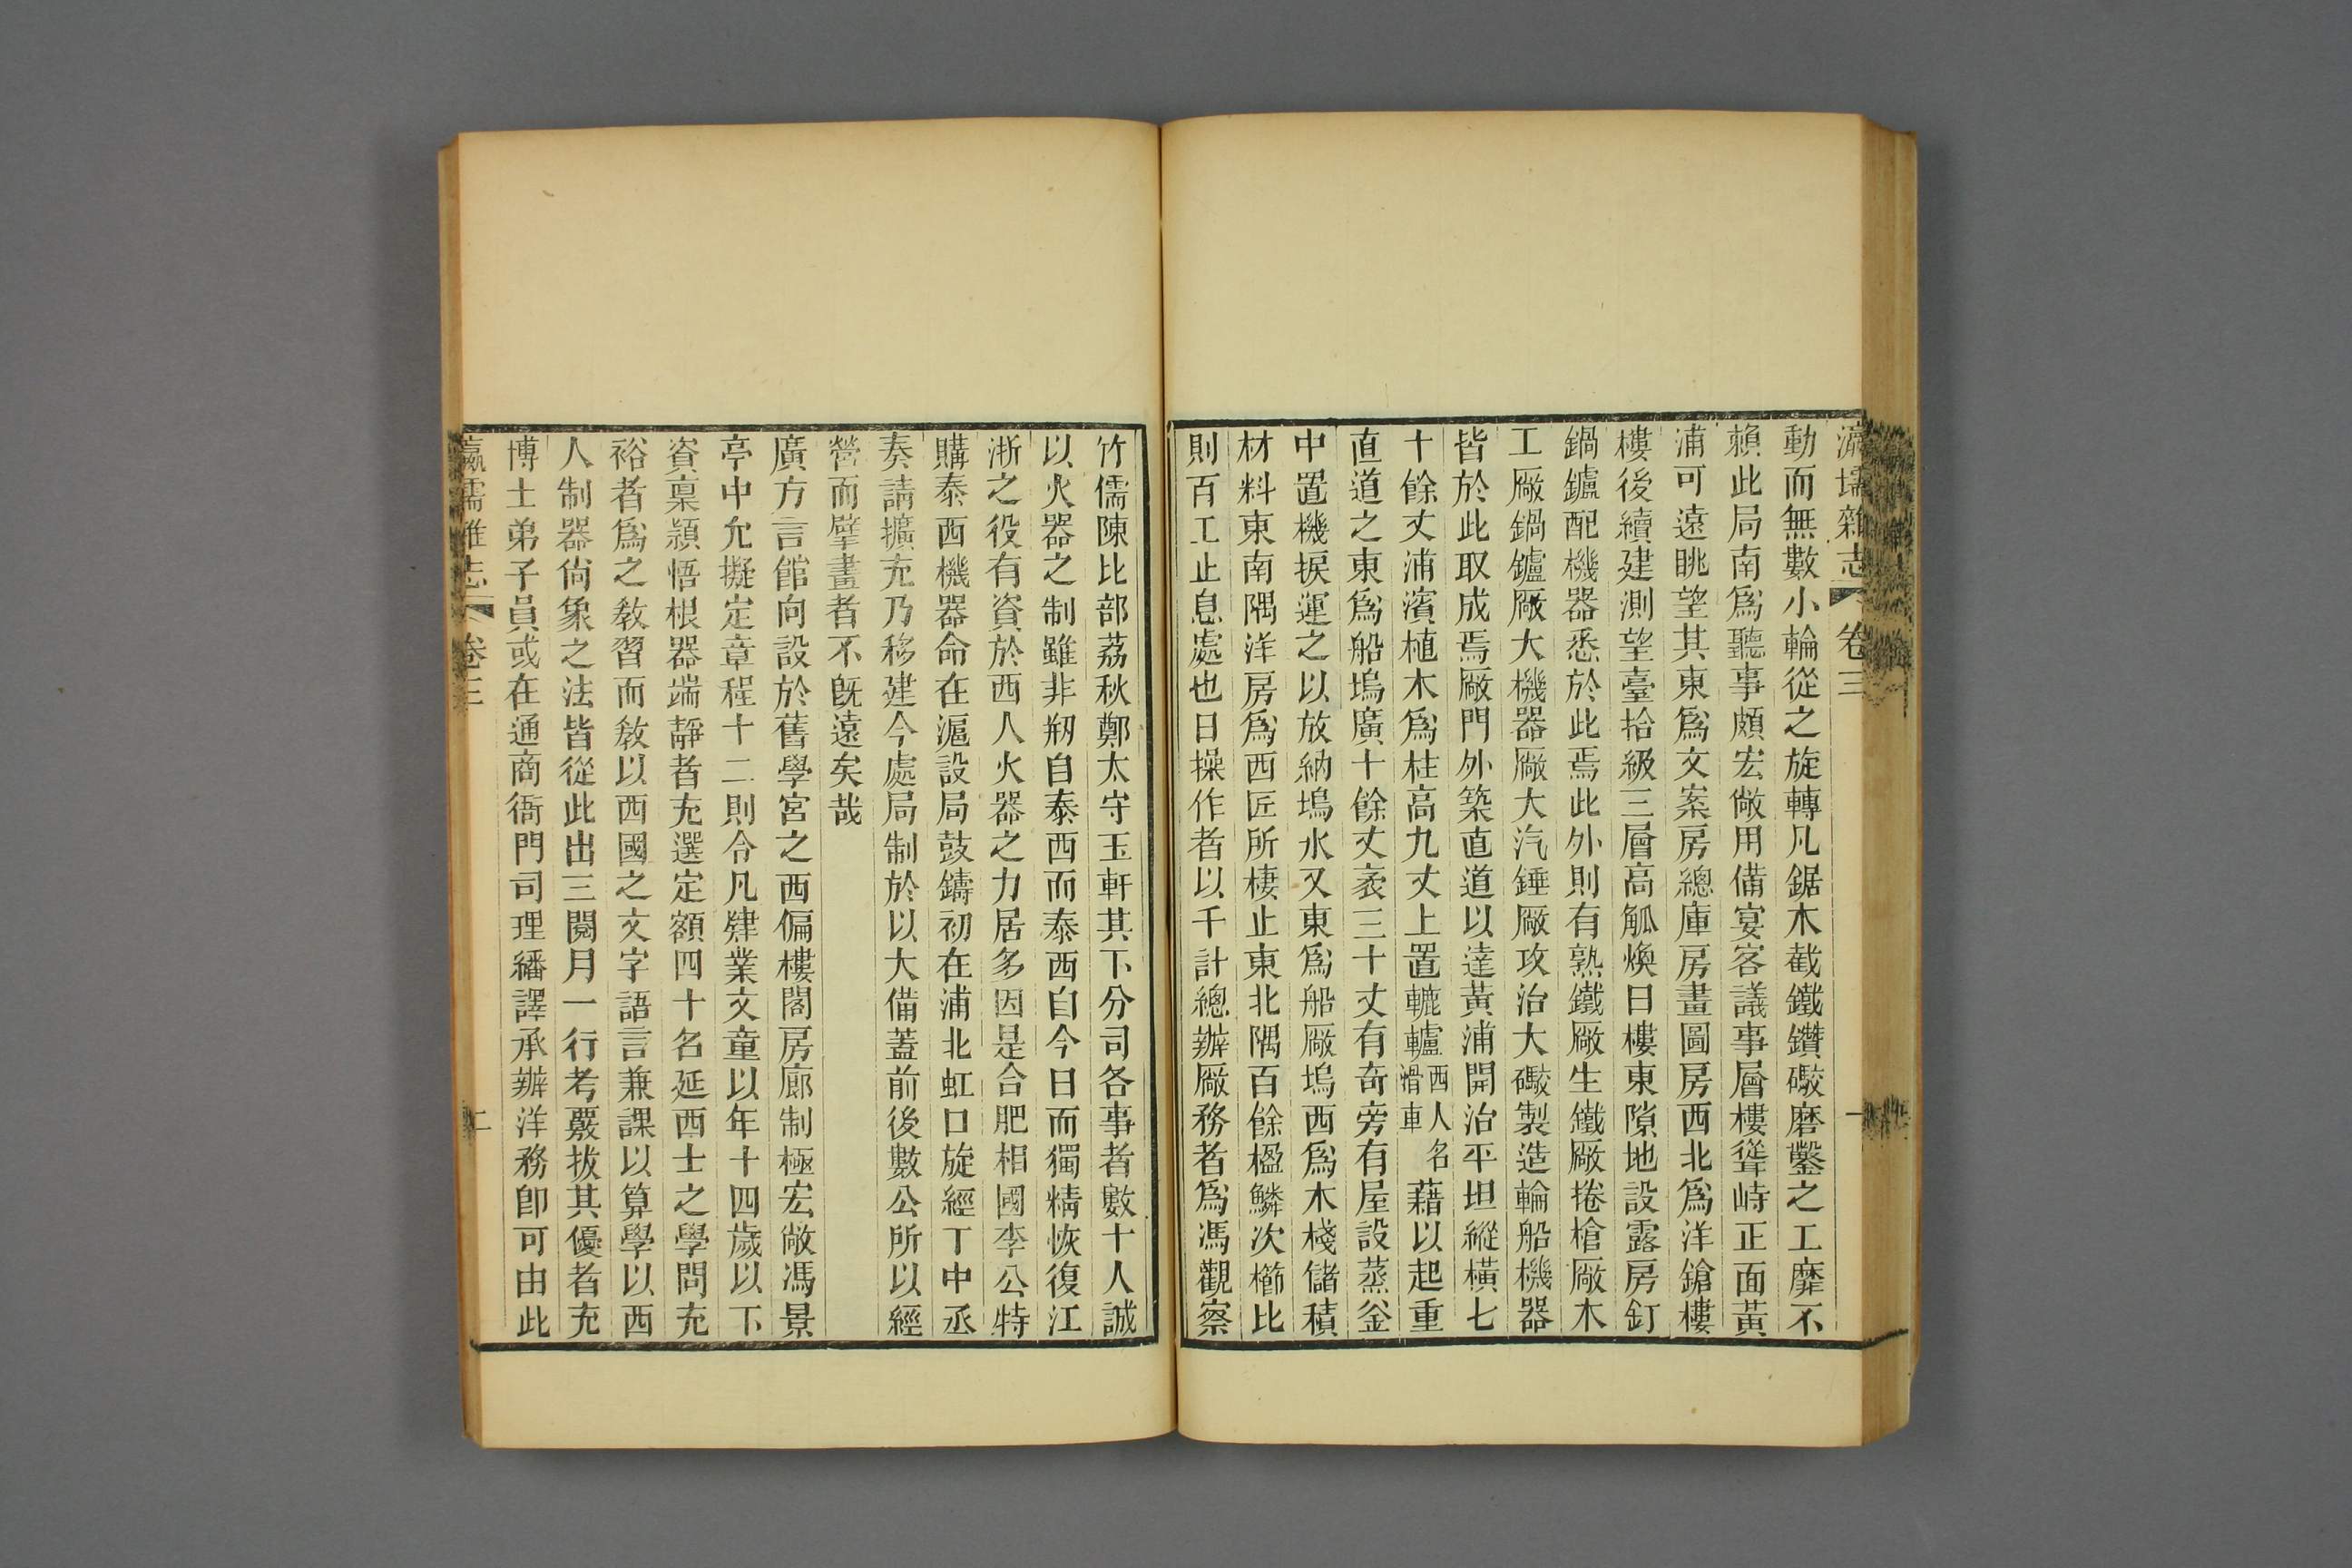 瀛壖雜志 卷三 一
動而無數小輪從之旋轉凡鋸木截鐵鑽礮磨鑿之工靡不
賴此局南爲聽事頗宏敞用備宴客議事層樓聳峙正面黃
浦可遠眺望其東爲文案房總庫房畫圖房西北爲洋鎗樓
樓後續建測望臺拾級三層高觚煥日樓東隙地設露房釘
鍋鑪配機器悉於此焉此外則有熟鐵廠生鐵廠捲槍廠木
工廠鍋鑪廠大機器廠大汽錘廠攻治大礮製造輪船機器
皆於此取成焉廠門外築直道以達黃浦開治平坦縱橫七
十餘丈浦濱植木爲柱高九丈上置轆轤西人名滑車藉以起重
直道之東爲船塢廣十餘丈袤三十丈有奇旁有屋設蒸釜
中置機捩運之以放納塢水又東爲船廠塢西爲木棧儲積
材料東南隅洋房爲西匠所棲止東北隅百餘楹鱗次櫛比
則百工止息處也日操作者以千計總辦廠務者爲馮觀察
竹儒陳比部荔秋鄭太守玉軒其下分司各事者數十人誠
以火器之制雖非刱自泰西而泰西自今日而獨精恢復江
浙之役有資於西人火器之力居多因是合肥相國李公特
購泰西機器命在滬設局鼓鑄初在浦北虹口旋經丁中丞
奏請擴充乃移建今處局制於以大備蓋前後數公所以經
營而擘畫者不旣遠矣哉
廣方言館向設於舊學宮之西偏樓閣房廊制極宏敞馮景
亭中允擬定章程十二則令凡肄業文童以年十四歲以下
資稟穎悟根器端靜者充選定額四十名延西士之學問充
裕者爲之敎習而敎以西國之文字語言兼課以算學以西
人制器尙象之法皆從此出三閱月一行考覈拔其優者充
博士弟子員或在通商衙門司理繙譯承辦洋務卽可由此
瀛壖雜志 卷三 二